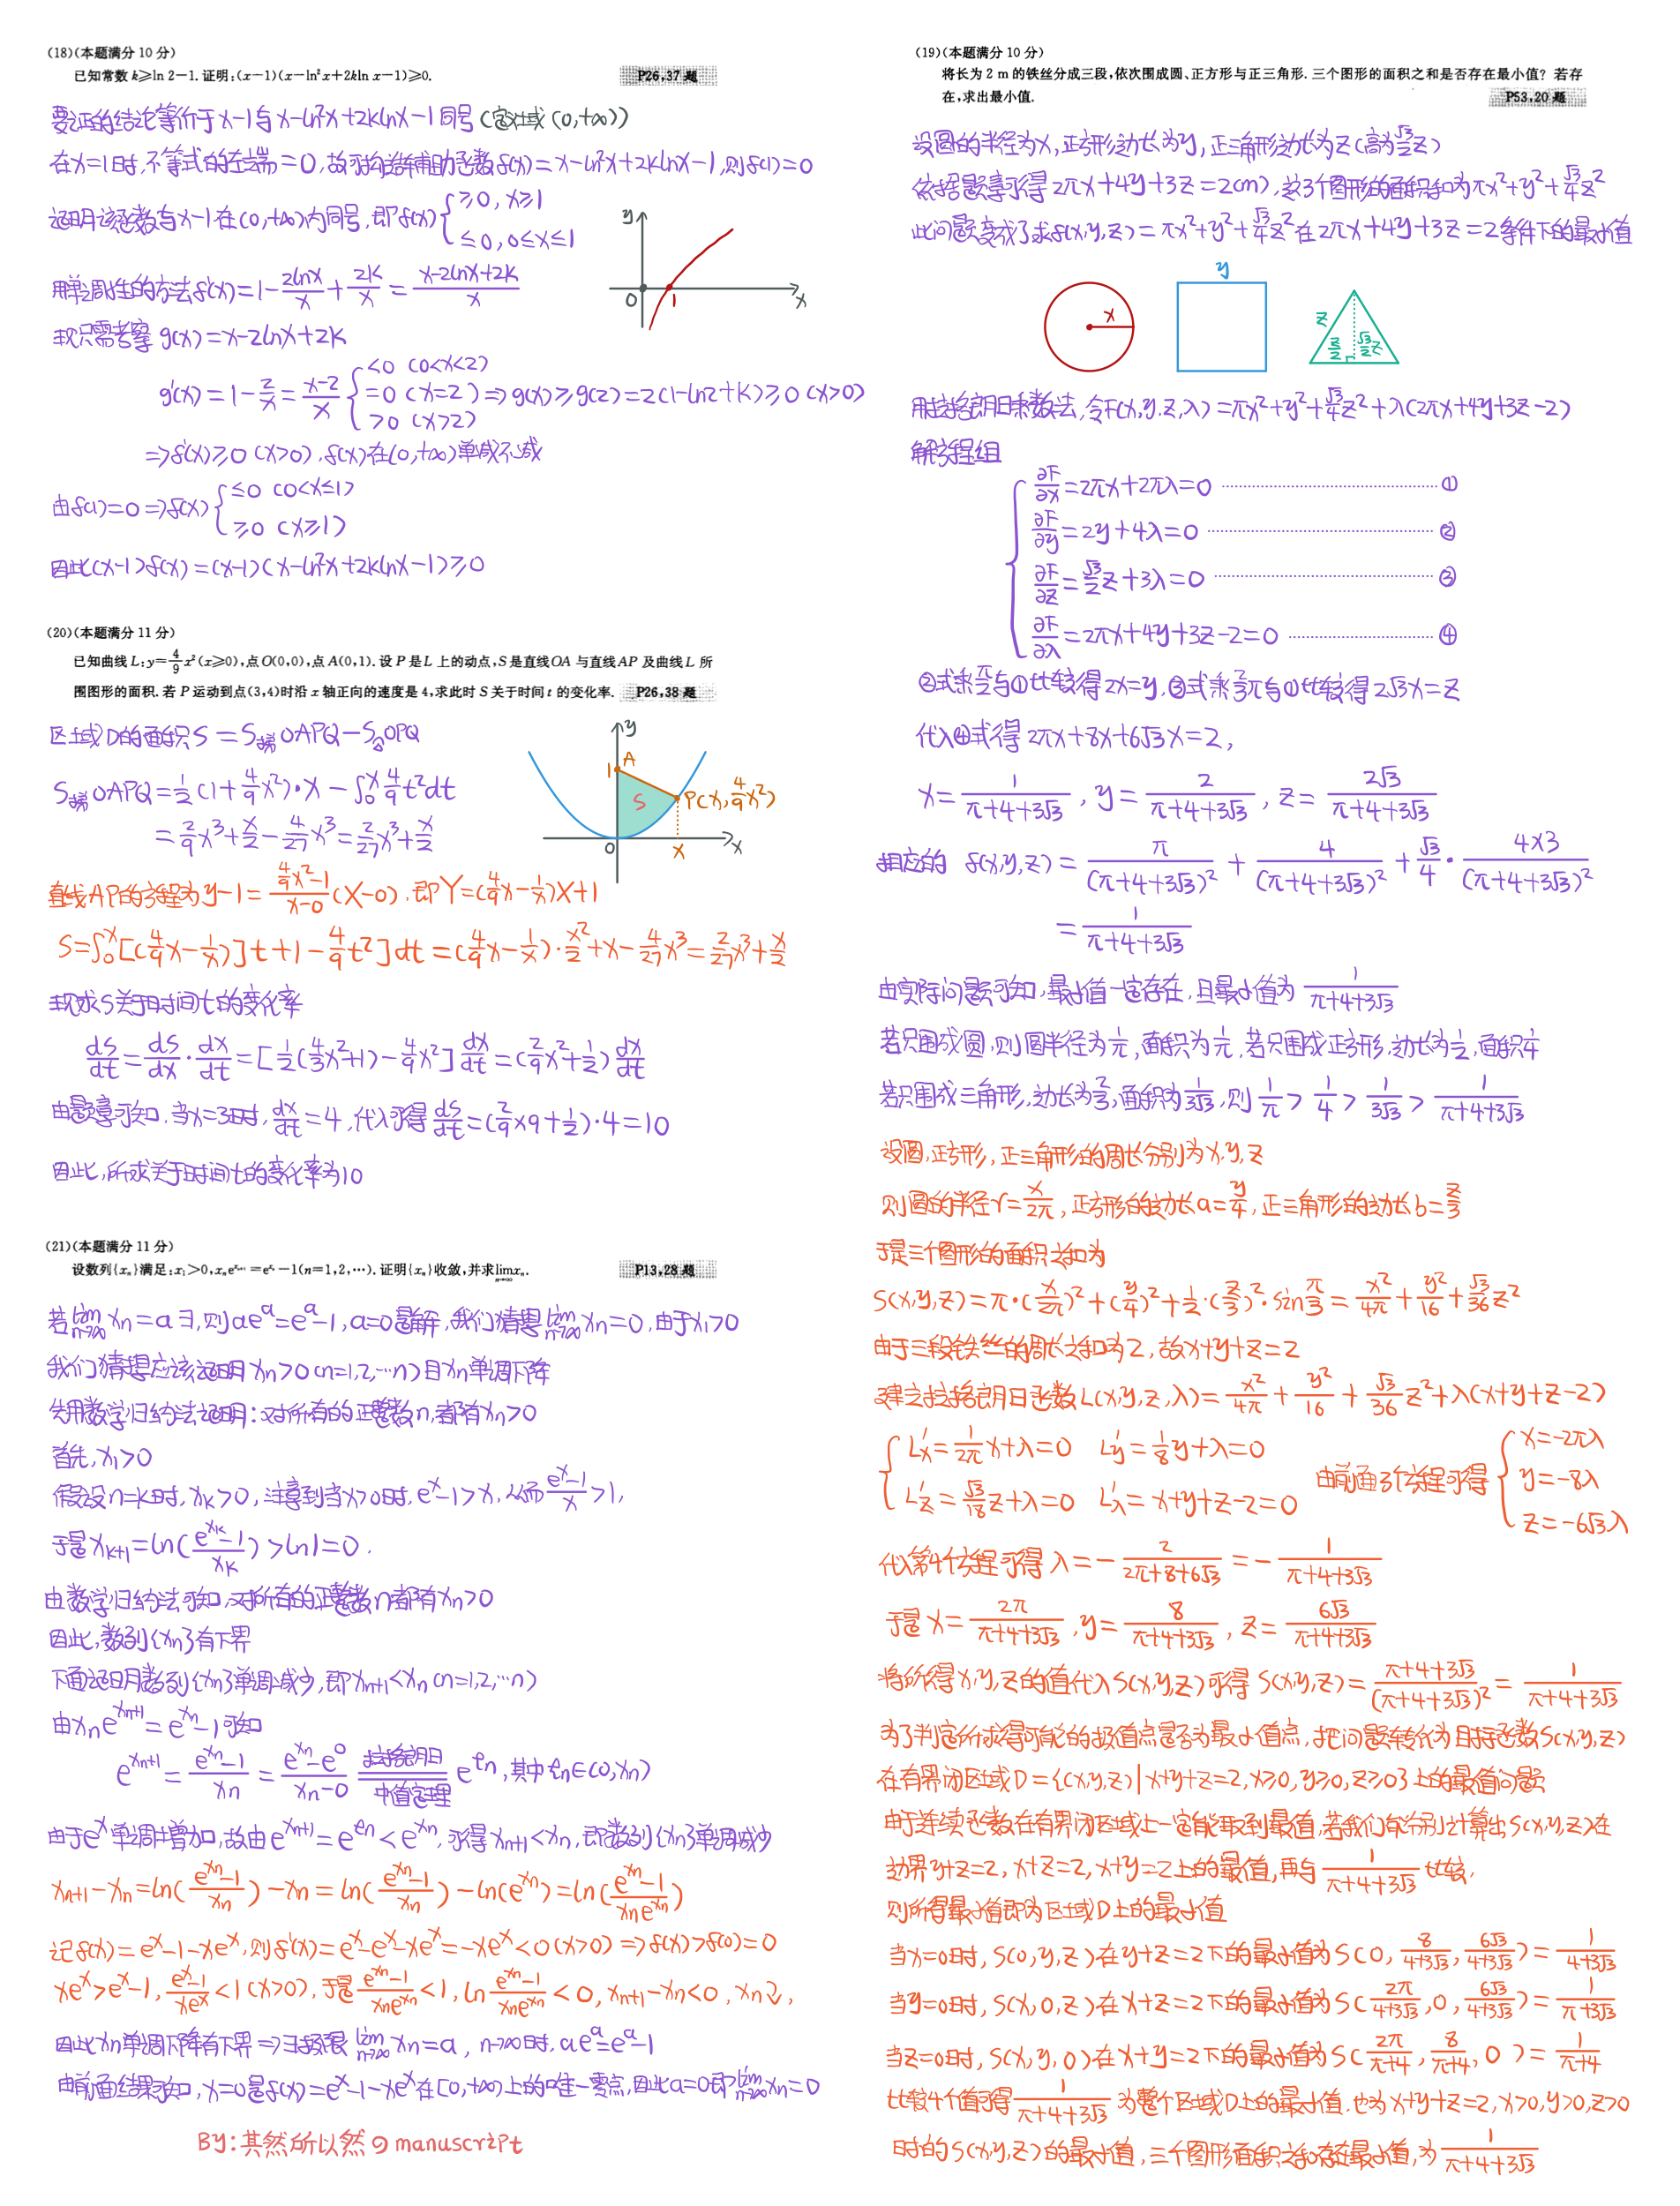 (18)(本题满分 10 分)
已知常数 k≥ln 2−1. 证明:(x−1)(x−ln²x+2kln x−1)≥0.
P26,37 题
要证的结论等价于x−1与x−ln²x+2klnx−1同号(定义域(0,+∞))
在x=1时,不等式的左端=0,故可构造辅助函数f(x)=x−ln²x+2klnx−1,则f(1)=0
证明该函数与x−1在(0,+∞)内同号,即f(x) { ≥0, x≥1
≤0, 0≤x≤1
用单调性的方法f'(x)=1−2lnx/x+2k/x=(x−2lnx+2k)/x
y
0 1 x
现只需考察 g(x)=x−2lnx+2k
g'(x)=1−2/x=(x−2)/x { <0 (0<x<2)
=0 (x=2) => g(x)≥g(2)=2(1−ln2+k)≥0 (x>0)
>0 (x>2)
=>f'(x)≥0 (x>0), f(x)在(0,+∞)单减不减
由f(1)=0 =>f(x) { ≤0 (0<x≤1)
≥0 (x≥1)
因此(x−1)f(x)=(x−1)(x−ln²x+2klnx−1)≥0
(20)(本题满分 11 分)
已知曲线 L:y=4/9 x²(x≥0),点 O(0,0),点 A(0,1). 设 P 是 L 上的动点,S 是直线 OA 与直线 AP 及曲线 L 所
围图形的面积. 若 P 运动到点(3,4)时沿 x 轴正向的速度是 4,求此时 S 关于时间 t 的变化率.
P26,38 题
区域D的面积S=S梯OAPQ−S△OPQ
S梯OAPQ=1/2(1+4/9x²)·x−∫₀ˣ4/9t²dt
=2/9x³+x/2−4/27x³=2/27x³+x/2
y
1 A
S P(x,4/9x²)
0 x x
直线AP的方程为y−1=(4/9x²−1)/(x−0)(X−0),即Y=(4/9x−1/x)X+1
S=∫₀ˣ[(4/9x−1/x)]t+1−4/9t²]dt=(4/9x−1/x)·x²/2+x−4/27x³=2/27x³+x/2
现求S关于时间t的变化率
dS/dt=dS/dx·dx/dt=[1/2(4/3x²+1)−4/9x²]dx/dt=(2/9x²+1/2)dx/dt
由题意可知,当x=3时,dx/dt=4,代入可得dS/dt=(2/9×9+1/2)·4=10
因此,所求关于时间t的变化率为10
(21)(本题满分 11 分)
设数列{xₙ}满足:x₁>0,xₙe^(xₙ₊₁)=e^(xₙ)−1(n=1,2,⋯). 证明{xₙ}收敛,并求lim(n→∞)xₙ.
P13,28 题
若lim(n→∞)xn=a ∃,则ae^a=e^a−1,a=0是解,我们猜想lim(n→∞)xn=0,由于x1>0
我们猜想应该证明xn>0(n=1,2,⋯n)且xn单调下降
先用数学归纳法证明:对所有的正整数n,都有xn>0
首先,x1>0
假设n=k时,xk>0,注意到当x>0时,e^x−1>x,从而(e^x−1)/x>1,
于是x(k+1)=ln((e^(xk)−1)/xk)>ln1=0.
由数学归纳法可知,对所有的正整数n都有xn>0
因此,数列{xn}有下界
下面证明数列{xn}单调减少,即x(n+1)<xn(n=1,2,⋯n)
由xne^(xn+1)=e^(xn)−1可知
e^(xn+1)=(e^(xn)−1)/xn=(e^(xn)−e^0)/(xn−0) 拉格朗日中值定理 e^(ξn),其中ξn∈(0,xn)
由于e^x单调增加,故由e^(xn+1)=e^(ξn)<e^(xn),可得x(n+1)<xn,即数列{xn}单调减少
x(n+1)−xn=ln((e^(xn)−1)/xn)−xn=ln((e^(xn)−1)/xn)−ln(e^(xn))=ln((e^(xn)−1)/(xne^(xn)))
记f(x)=e^x−1−xe^x,则f'(x)=e^x−e^x−xe^x=−xe^x<0(x>0)=>f(x)>f(0)=0
xe^x>e^x−1,(e^x−1)/(xe^x)<1(x>0),于是(e^(xn)−1)/(xne^(xn))<1,ln(e^(xn)−1)/(xne^(xn))<0,x(n+1)−xn<0,xn↓,
因此xn单调下降有下界=>∃极限lim(n→∞)xn=a,n→∞时,ae^a=e^a−1
由前面结果可知,x=0是f(x)=e^x−1−xe^x在[0,+∞)上的唯一零点,因此a=0即lim(n→∞)xn=0
By:其然所以然の manuscript
(19)(本题满分 10 分)
将长为 2 m 的铁丝分成三段,依次围成圆、正方形与正三角形. 三个图形的面积之和是否存在最小值? 若存
在,求出最小值.
P53,20 题
设圆的半径为x,正方形边长为y,正三角形边长为z(高为√3/2z)
依据题意可得2πx+4y+3z=2(m),这3个图形的面积和为πx²+y²+√3/4z²
此问题变成了求f(x,y,z)=πx²+y²+√3/4z²在2πx+4y+3z=2条件下的最小值
x
y
z z/2 √3/2z
用拉格朗日乘数法,令F(x,y,z,λ)=πx²+y²+√3/4z²+λ(2πx+4y+3z−2)
解方程组
∂F/∂x=2πx+2πλ=0 ⋯ ①
∂F/∂y=2y+4λ=0 ⋯ ②
∂F/∂z=√3/2z+3λ=0 ⋯ ③
∂F/∂λ=2πx+4y+3z−2=0 ⋯ ④
②式乘π/2与①比较得2x=y,③式乘2/3π与①比较得2√3x=z
代入④式得2πx+8x+6√3x=2,
x=1/(π+4+3√3),y=2/(π+4+3√3),z=2√3/(π+4+3√3)
相应的 f(x,y,z)=π/(π+4+3√3)²+4/(π+4+3√3)²+√3/4·4×3/(π+4+3√3)²
=1/(π+4+3√3)
由实际问题可知,最小值一定存在,且最小值为1/(π+4+3√3)
若只围成圆,则圆半径为1/π,面积为1/π,若只围成正方形,边长为1/2,面积1/4
若只围成三角形,边长为2/3,面积为1/3√3,则1/π>1/4>1/3√3>1/(π+4+3√3)
设圆,正方形,正三角形的周长分别为x,y,z
则圆的半径r=x/2π,正方形的边长a=y/4,正三角形的边长b=z/3
于是三个图形的面积之和为
S(x,y,z)=π·(x/2π)²+(y/4)²+1/2·(z/3)²·sinπ/3=x²/4π+y²/16+√3/36z²
由于三段铁丝的周长之和为2,故x+y+z=2
建立拉格朗日函数L(x,y,z,λ)=x²/4π+y²/16+√3/36z²+λ(x+y+z−2)
{ L'x=1/2πx+λ=0 L'y=1/8y+λ=0
L'z=√3/18z+λ=0 L'λ=x+y+z−2=0
由前面3个方程可得 { x=−2πλ
y=−8λ
z=−6√3λ
代入第4个方程可得λ=−2/(2π+8+6√3)=−1/(π+4+3√3)
于是x=2π/(π+4+3√3),y=8/(π+4+3√3),z=6√3/(π+4+3√3)
将所得x,y,z的值代入S(x,y,z)可得S(x,y,z)=(π+4+3√3)/(π+4+3√3)²=1/(π+4+3√3)
为了判定所求得可能的极值点是否为最小值点,把问题转化为目标函数S(x,y,z)
在有界闭区域D={(x,y,z)|x+y+z=2,x≥0,y≥0,z≥0}上的最值问题
由于连续函数在有界闭区域上一定能取到最值,若我们能分别计算出S(x,y,z)在
边界y+z=2,x+z=2,x+y=2上的最值,再与1/(π+4+3√3)比较,
则所得最小值即为区域D上的最小值
当x=0时,S(0,y,z)在y+z=2下的最小值为S(0,8/(4+3√3),6√3/(4+3√3))=1/(4+3√3)
当y=0时,S(x,0,z)在x+z=2下的最小值为S(2π/(4+3√3),0,6√3/(4+3√3))=1/(π+3√3)
当z=0时,S(x,y,0)在x+y=2下的最小值为S(2π/(π+4),8/(π+4),0)=1/(π+4)
比较4个值可得1/(π+4+3√3)为整个区域D上的最小值,也为x+y+z=2,x>0,y>0,z>0
时的S(x,y,z)的最小值,三个图形面积之和存在最小值,为1/(π+4+3√3)